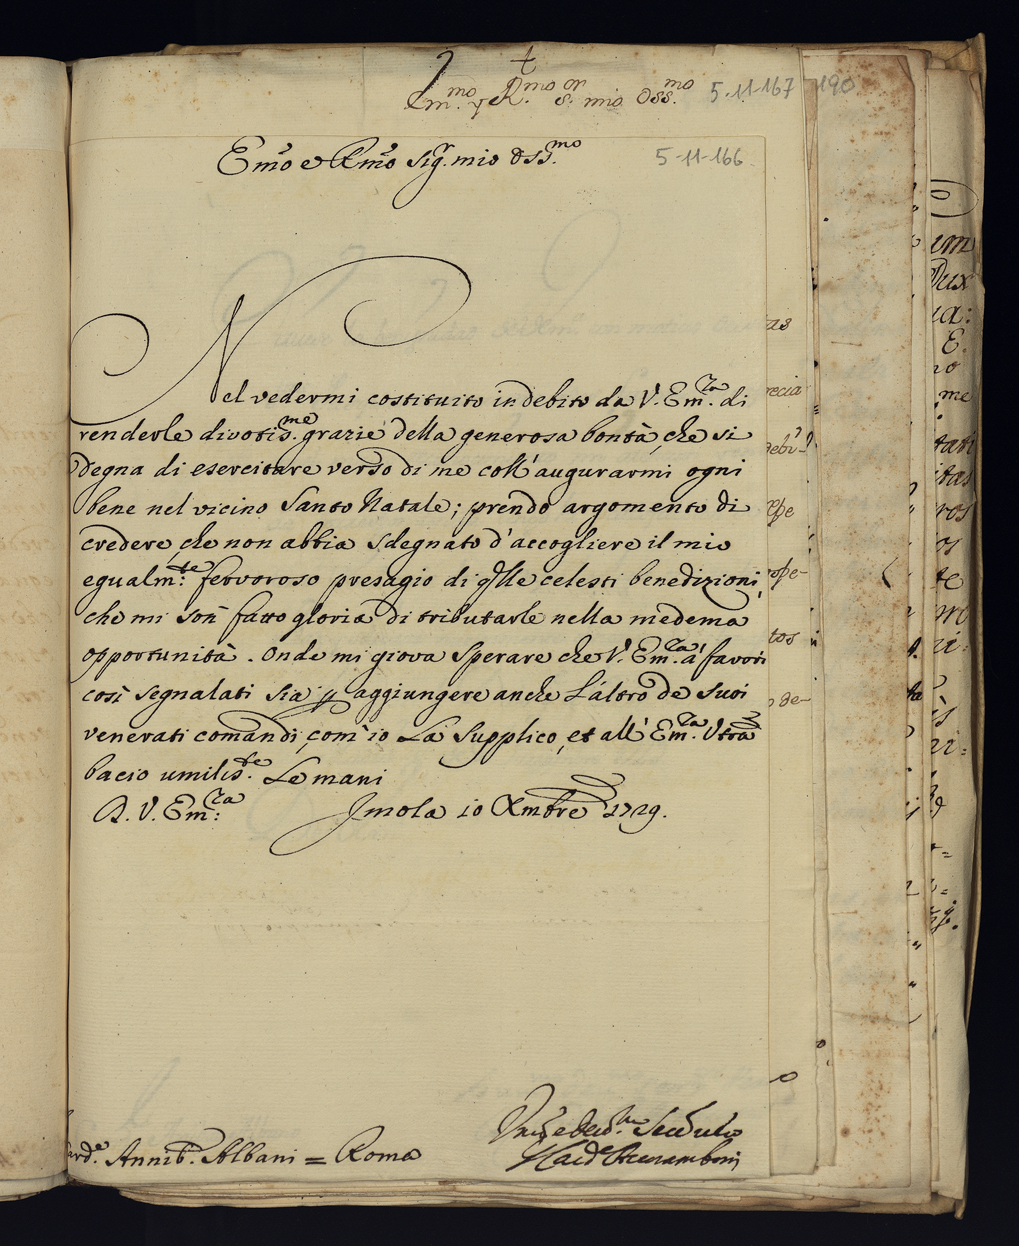 Em.mo y R.mo S.or mio Oss.mo 5-11-167 190
Em̃o e Rm̃o Sig.r mio Oss.mo 5-11-166
Nel vedermi costituito in debito da V. Em.za di
renderle divotis.me grazie della generosa bontà, che si
degna di esercitare verso di me coll'augurarmi ogni
bene nel vicino Santo Natale; prendo argomento di
credere, che non abbia sdegnato d'accogliere il mio
egualm.te fervoroso presagio di q̃lle celesti benedizioni,
che mi son fatto gloria di tributarle nella medema
opportunità. Onde mi giova sperare che V. Em.za a' favori
così segnalati sia p aggiungere anche l'altro de suoi
venerati comandi, com'io La Supplico, et all'Em.za Vtrã
bacio umilis.te Le mani
D. V. Em.za: Jmola 10 Xmbre 1729.
ard.e Annib.e Albani = Roma